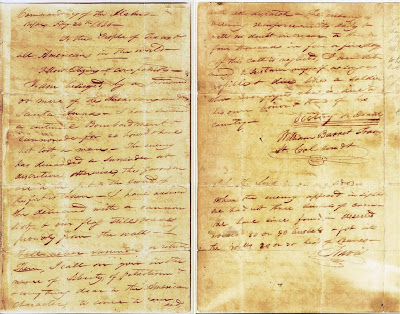 Commandancy of the Alamo
Bejar, Fby 24th 1836
To the People of Texas &
all Americans in the world
Fellow citizens & compatriots
I am besieged by a
or more of the Mexicans under
Santa Anna
a continual Bombardment &
cannonade for 24 hours & have
not lost a man The enemy
has demanded a surrender at
discretion, otherwise, the garrison
are to be put to the sword
the fort is taken I have answered
the demand with a cannon
shot, & our flag still waves
proudly from the walls
shall never surrender or retreat
Then, I call on you in the
name of Liberty, of patriotism &
every thing dear to the American
character, to come to our aid
with all dispatch The enemy is
receiving reinforcements daily &
will no doubt increase to
four thousand in four or five days
this call is neglected, I am determined
to sustain myself as long as
possible & die like a soldier
who never forgets what is due to
his own honor & that of his
country
Victory or Death
William Barret Travis
Lt. Col. comdt
P.S. The Lord is on our side
When the enemy appeared in sight
we had not three bushels of corn
We have since found in deserted
houses 80 or 90 bushels & got into
the walls 20 or 30 head of Beeves
Travis